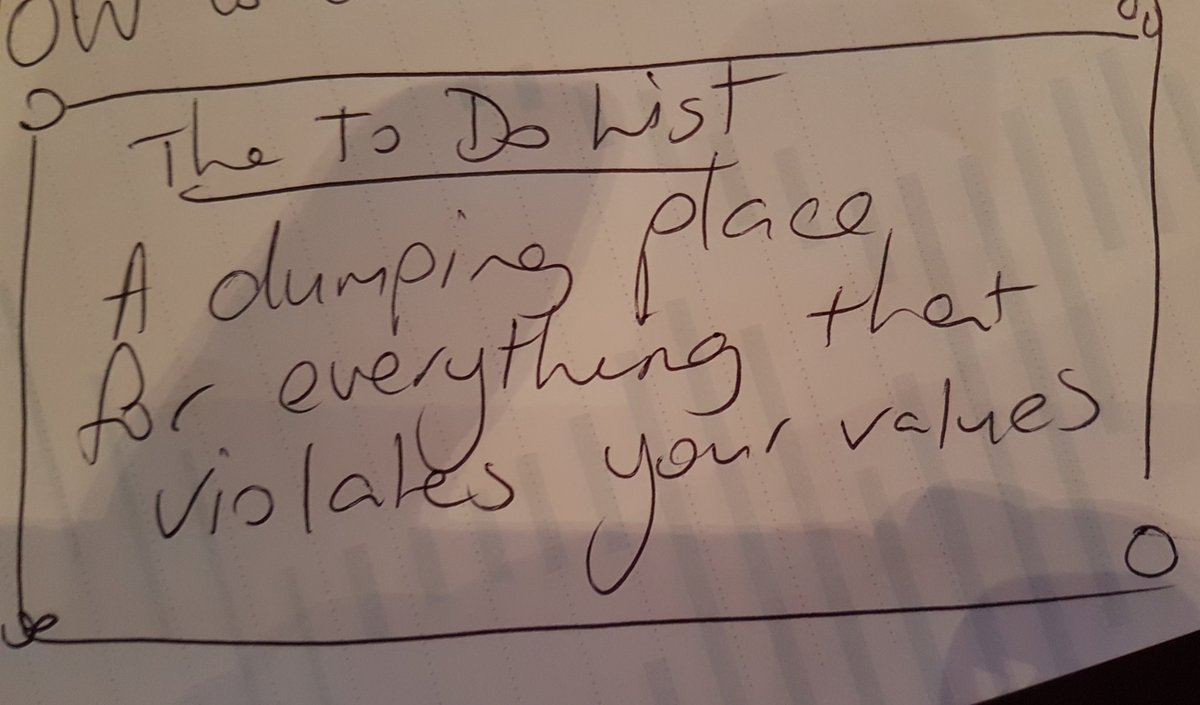 The To Do List
A dumping place
for everything that
violates your values